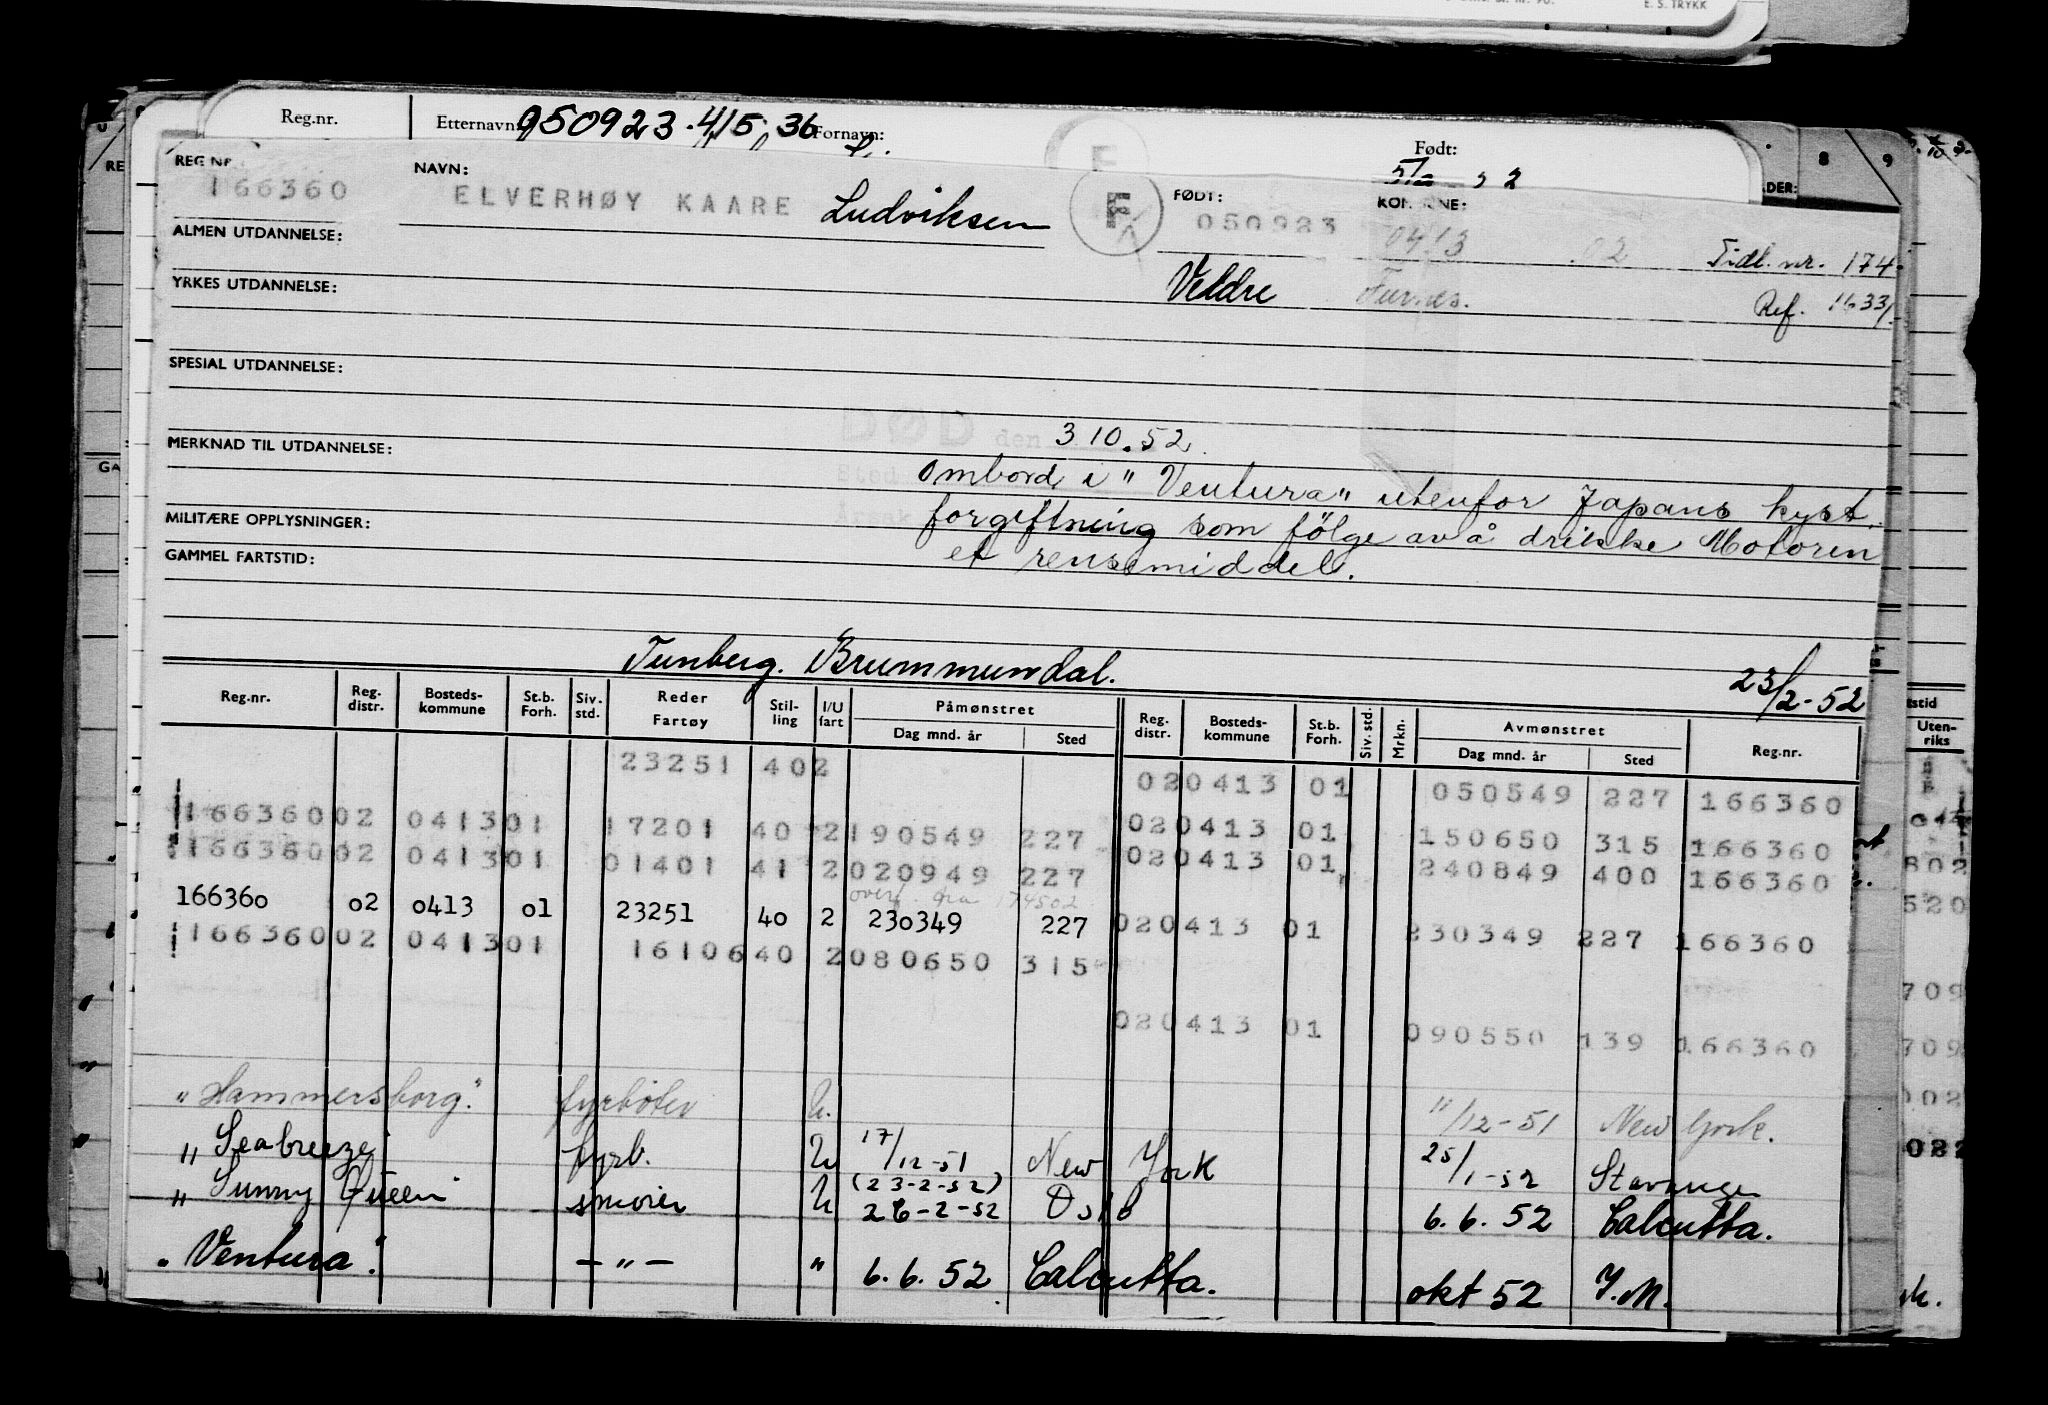 E. S. TRYKK
Reg.nr. Etternavn: 050923.415.36 Fornavn: Født:
REG NR. NAVN: FØDT: KOMMUNE:
166360 ELVERHØY KAARE Ludviksen 050923 0413 02 Tidl. nr. 174
ALMEN UTDANNELSE:
YRKES UTDANNELSE: Veldre Furnes. Ref. 1633/
SPESIAL UTDANNELSE:
DØD den 3 10.52.
MERKNAD TIL UTDANNELSE: ombord i "Ventura" utenfor Japans kyst.
MILITÆRE OPPLYSNINGER: forgiftning som følge av å drikke Motoren
GAMMEL FARTSTID: et rensemiddel.
Tunberg. Brummundal. 23/2-52
Reg.nr. Reg. distr. Bosteds-kommune St.b. Forh. Siv. std. Reder Fartøy Stil-ling I/U fart Påmønstret Dag mnd. år Sted Reg. distr. Bosteds-kommune St.b. Forh. Siv. std. Mrkn. Avmønstret Dag mnd. år Sted Reg.nr.
23251 402 020413 01 050549 227 166360
166360 02 0413 01 17201 40 2 190549 227 020413 01 150650 315 166360
166360 02 0413 01 01401 41 2 020949 227 020413 01 240849 400 166360
overf. fra 174502
166360 02 0413 01 23251 40 2 230349 227 020413 01 230349 227 166360
166360 02 0413 01 16106 40 2 080650 315
020413 01 090550 139 166360
"Hammersborg." fyrbøter U. 11/12-51 New York.
" Seabreeze fyrb. U 17/12-51 New York 25/1-52 Stavanger
" Sunny Queen smører U (23-2-52) 26-2-52 Oslo 6.6.52 Calcutta.
"Ventura". - " - " 6.6.52 Calcutta. okt 52 Y.M.